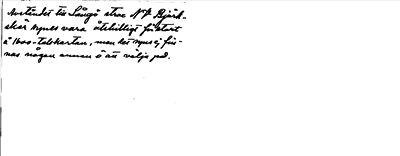 Avståndet till Långö etsoc N. V. Björk-
skär synes vara åtskilligt för stort
å 1600-talskartan, men det synes ej fin-
nas någon annan ö att välja på.